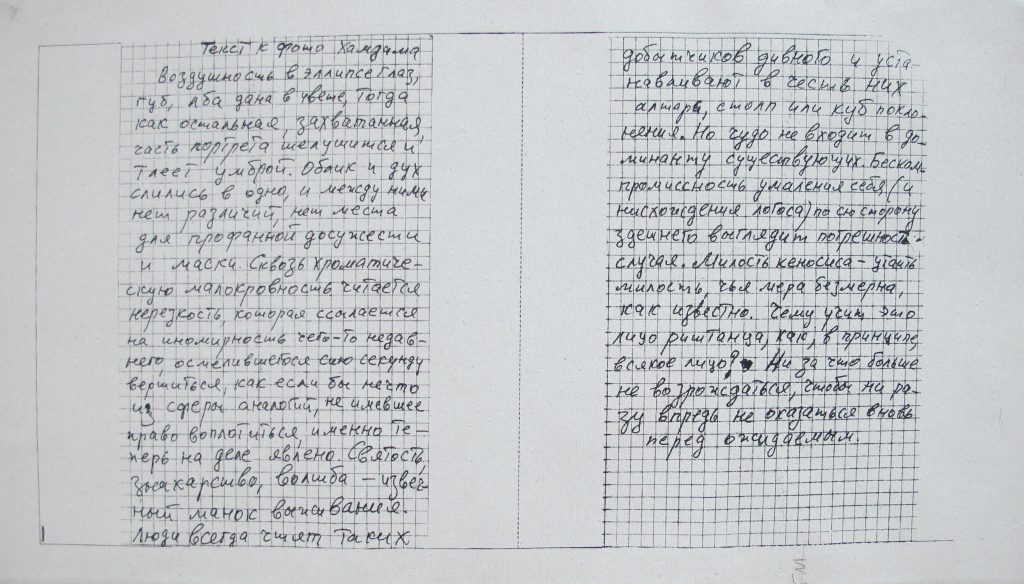 Текст к фото Хамдама
Воздушность в эллипсе глаз,
губ, лба дана в цвете, тогда
как остальная, захватанная,
часть портрета шелушится и
тлеет умброй. Облик и дух
слились в одно, и между ними
нет различий, нет места
для профанной досужести
и маски. Сквозь хроматиче-
скую малокровность читается
нерезкость, которая ссылается
на иномирность чего-то недав-
него, осмелившегося сию секунду
вершиться, как если бы нечто
из сферы аналогий, не имевшее
право воплотиться, именно те-
перь на деле явлено. Святость,
знахарство, волшба – извеч-
ный манок выживания.
Люди всегда чтят таких
добытчиков дивного и уста-
навливают в честь них
алтарь, столп или куб покло-
нения. Но чудо не входит в до-
минанту существующих. Беском-
промиссность умаления себя (и
нисхождения логоса) по сю сторону
здешнего выглядит погрешност.
случая. Милость кеносиса – утаить
милость, чья мера безмерна,
как известно. Чему учит это
лицо риштанца, как, в принципе,
всякое лицо? Ни за что больше
не возрождаться, чтобы ни ра-
зу впредь не оказаться вновь
перед ожидаемым.